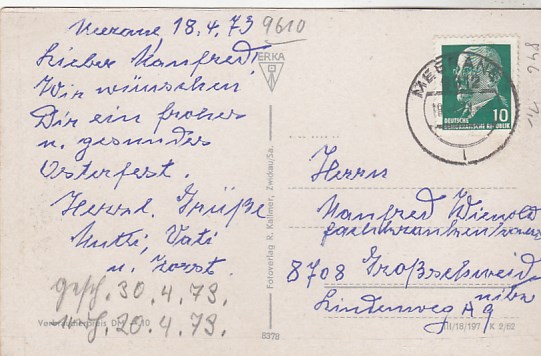 Meerane, 18.4.73
9610
Lieber Manfred!
Wir wünschen
Dir ein frohes
u. gesundes
Osterfest.
Herzl. Grüße
Mutti, Vati
u. Horst.
gesch. 30.4.73.
20.4.73.
Verbraucherpreis DM 0,10
8378
ERKA
Fotoverlag R. Kallmer, Zwickau/Sa.
MEERANE
1
10
DEUTSCHE
DEMOKRATISCHE REPUBLIK
Herrn
Manfred Wienold
Fachkrankenhaus
8708 Großschweid
nitz
Lindenweg A 9
III/18/197 K 2/62